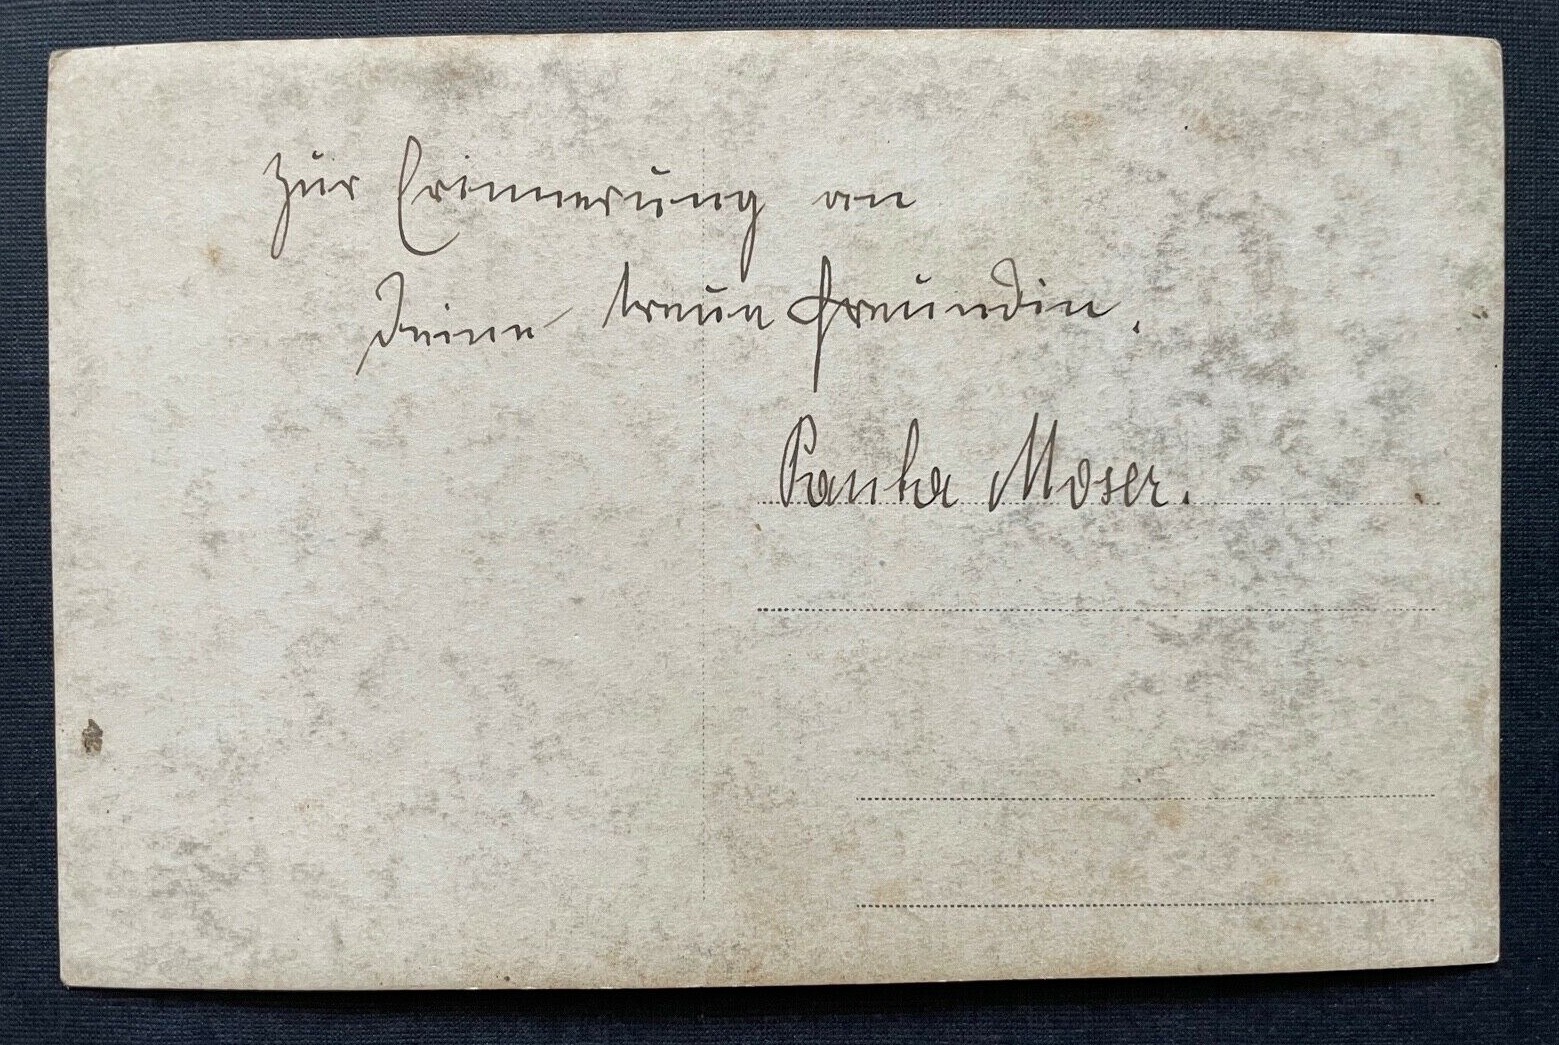 Zur Erinnerung an
Deine treue Freundin.
Moser.